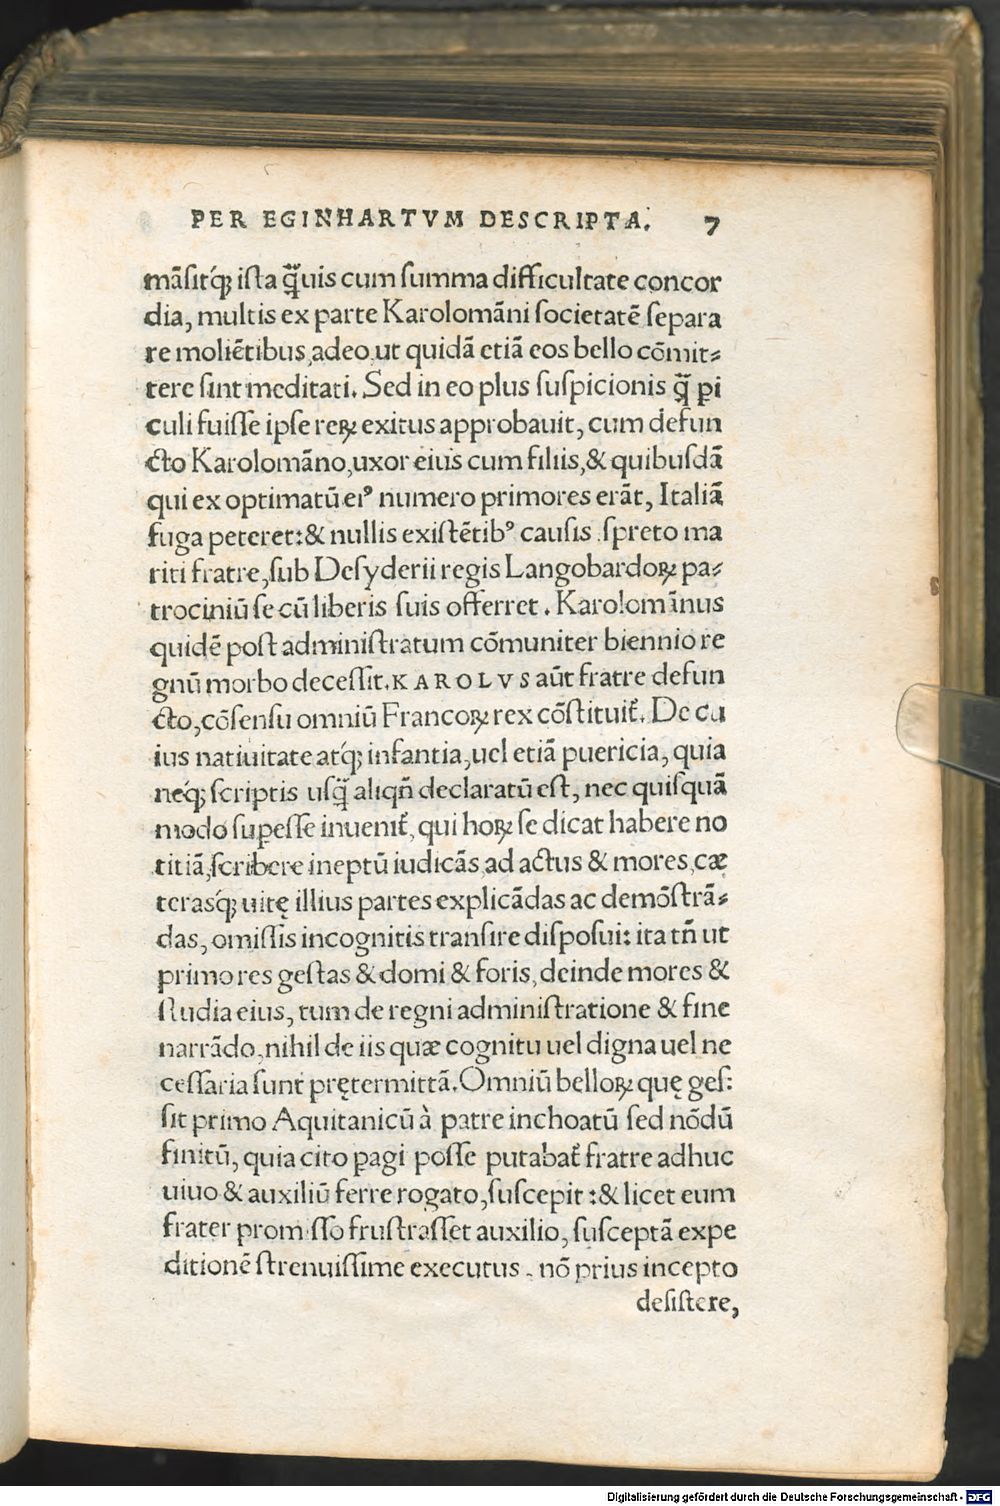 PER EGINHARTVM DESCRIPTA. 7
mãsitq́ꝫ ista q̃uis cum summa difficultate concor
dia, multis ex parte Karolomãni societatẽ separa
re moliẽtibus, adeo ut quidã etiã eos bello cõmit⸗
tere sint meditati. Sed in eo plus suspicionis q̃ ꝑi
culi fuisse ipse reꝝ exitus approbauit, cum defun
cto Karolomãno, uxor eius cum filiis, & quibusdã
qui ex optimatũ eiꝰ numero primores erãt, Italiã
fuga peteret: & nullis existẽtibꝰ causis spreto ma
riti fratre, sub Desyderii regis Langobardoꝝ pa⸗
trociniũ se cũ liberis suis offerret. Karolomãnus
quidẽ post administratum cõmuniter biennio re
gnũ morbo decessit. KAROLVS aũt fratre defun
cto, cõsensu omniũ Francoꝝ rex cõstituit᷑. De cu
ius natiuitate atq́ꝫ infantia, uel etiã puericia, quia
neq́ꝫ scriptis usq̃ aliqñ declaratũ est, nec quisquã
modo suꝑesse inuenit᷑, qui hoꝝ se dicat habere no
titiã, scribere ineptũ iudicãs, ad actus & mores, cæ
terasq́ꝫ uitę illius partes explicãdas ac demõstrã⸗
das, omissis incognitis transire disposui: ita tñ ut
primo res gestas & domi & foris, deinde mores &
studia eius, tum de regni administratione & fine
narrãdo, nihil de iis quæ cognitu uel digna uel ne
cessaria sunt prętermittã. Omniũ belloꝝ quę ges⸗
sit primo Aquitanicũ à patre inchoatũ sed nõdũ
finitũ, quia cito pagi posse putabat᷑ fratre adhuc
uiuo & auxiliũ ferre rogato, suscepit: & licet eum
frater promisso frustrasset auxilio, susceptã expe
ditionẽ strenuissime executus, nõ prius incepto
desistere,
Digitalisierung gefördert durch die Deutsche Forschungsgemeinschaft - DFG